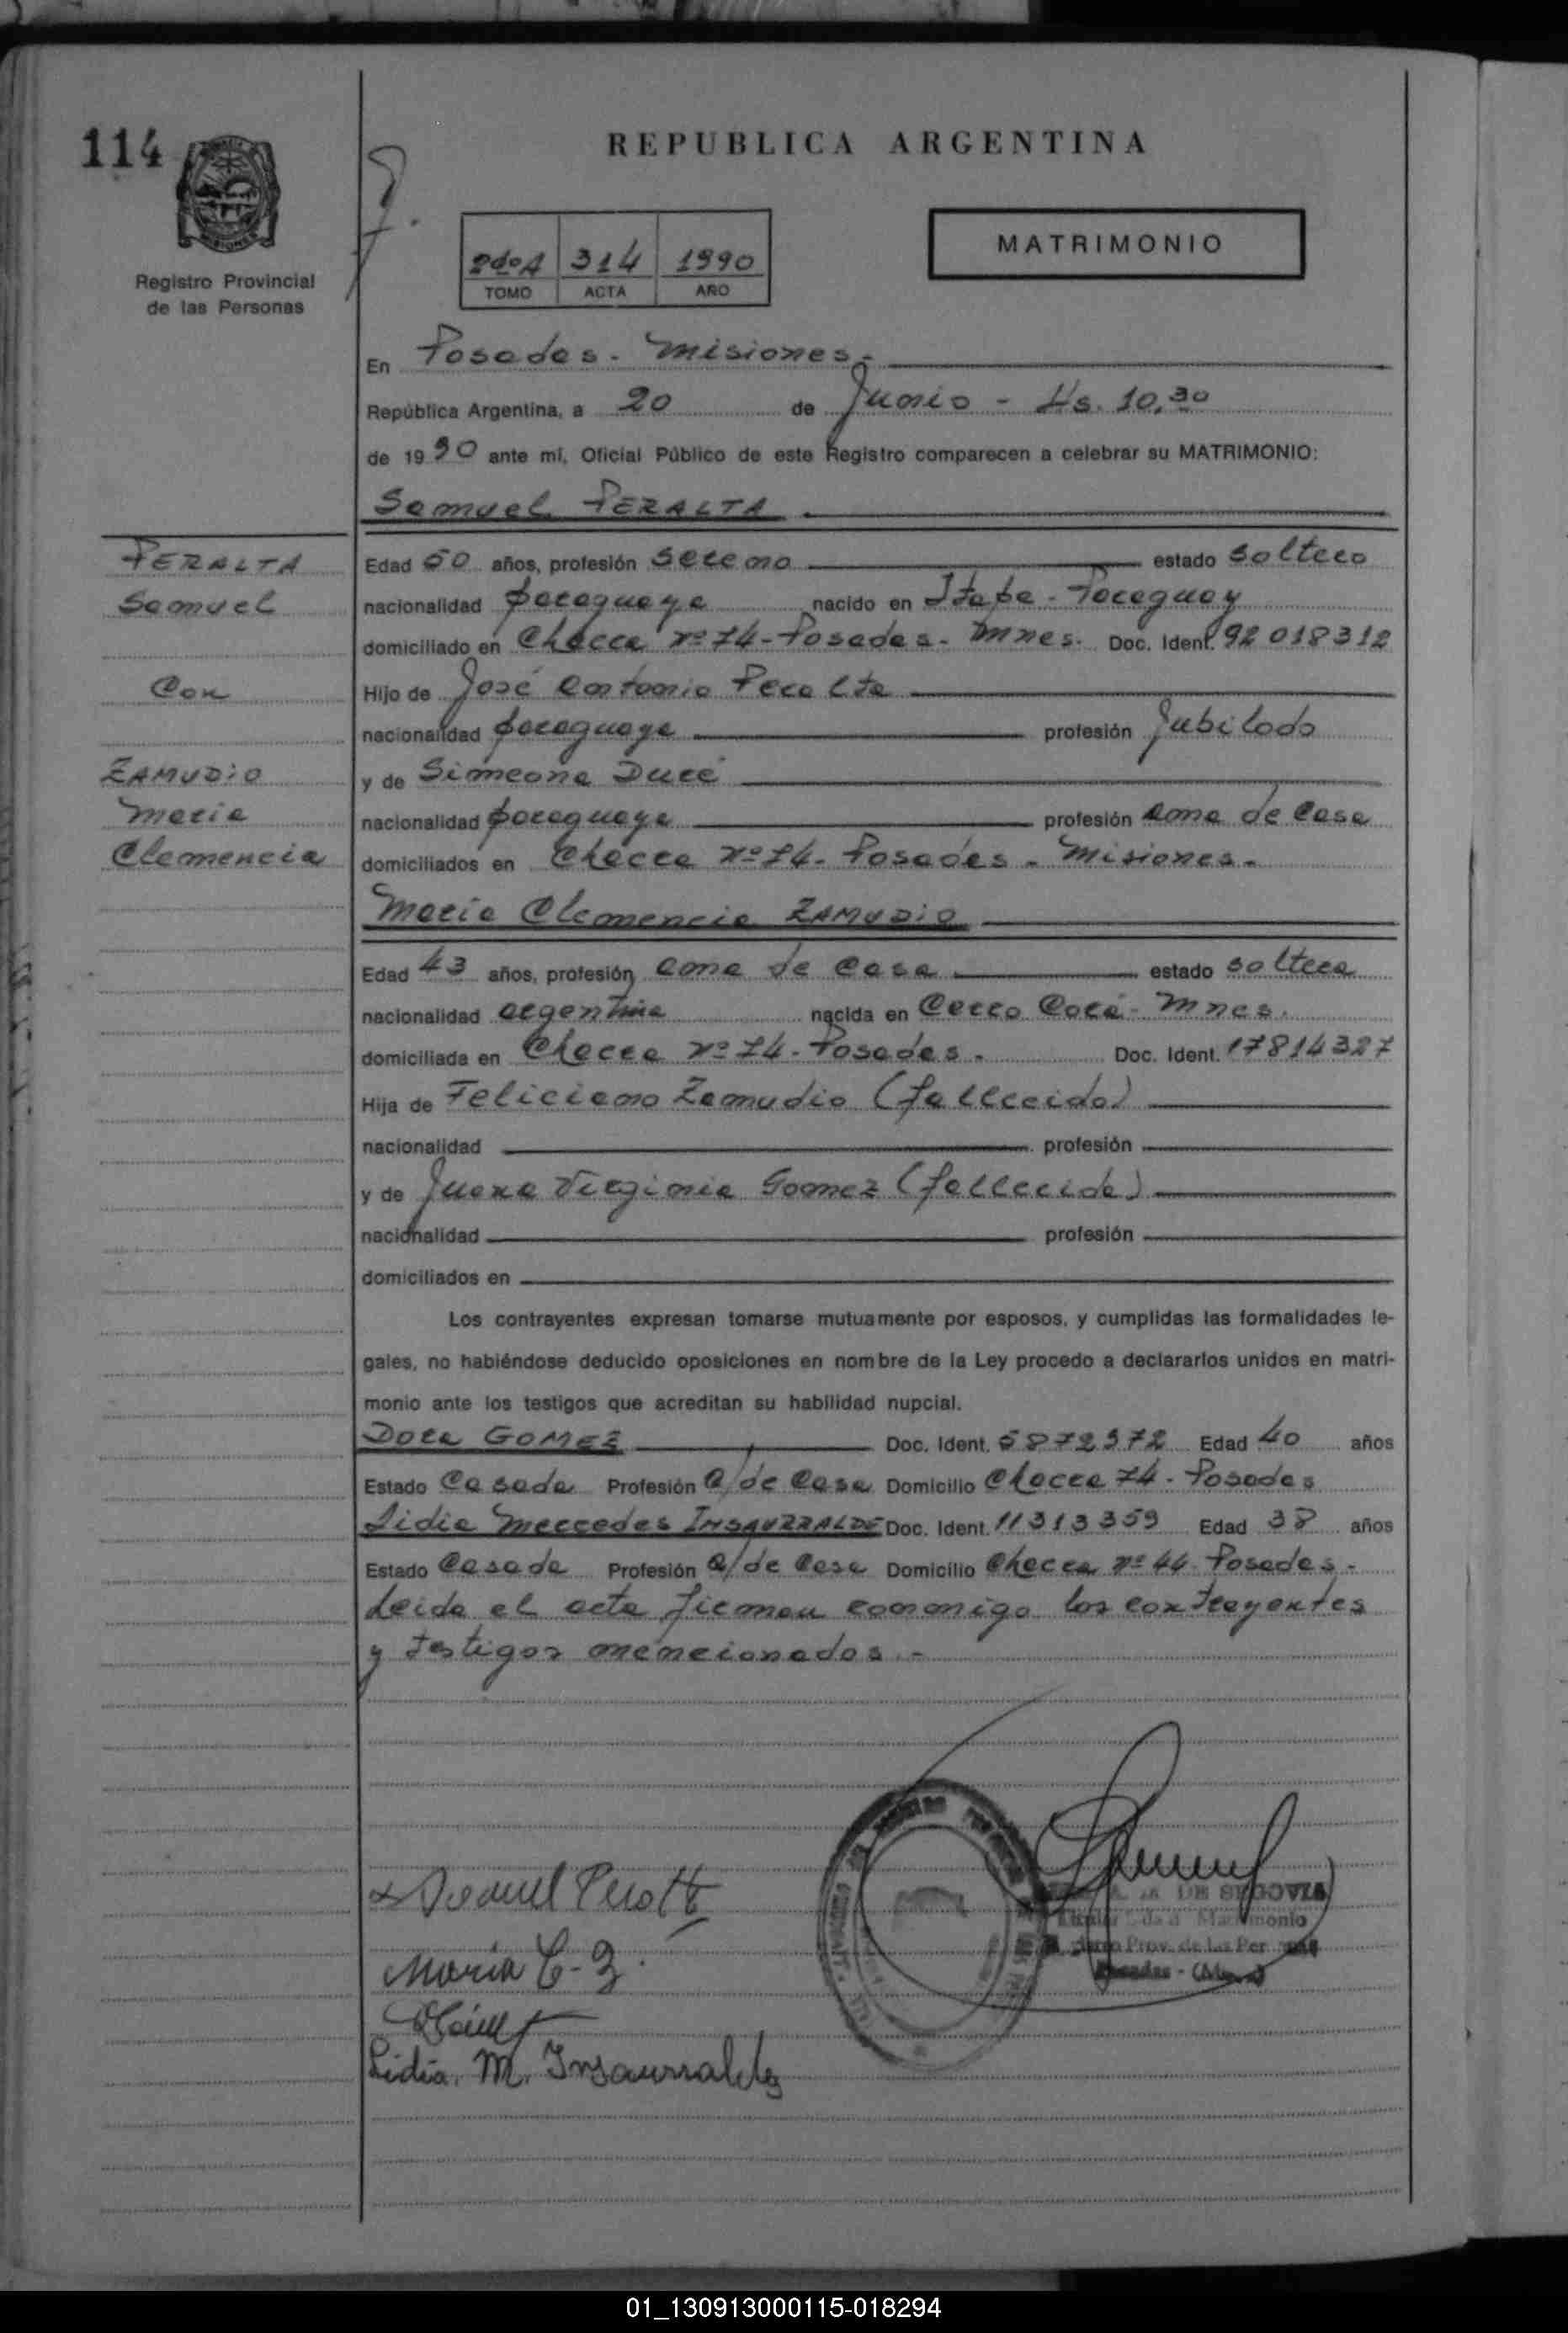 114
REPUBLICA ARGENTINA
MISIONES
Registro Provincial
de las Personas
2do A 314 1990
TOMO ACTA AÑO
MATRIMONIO
En Posadas - Misiones.-
República Argentina, a 20 de Junio - Hs. 10,30
de 1990 ante mí, Oficial Público de este Registro comparecen a celebrar su MATRIMONIO:
Samuel PERALTA
PERALTA
Samuel
Con
ZAMUDIO
Maria
Clemencia
Edad 50 años, profesión Sereno estado Soltero
nacionalidad paraguaya nacido en Itape - Paraguay
domiciliado en Chacra nº 74 - Posadas - Mnes. Doc. Ident. 92 018312
Hijo de José Antonio Peralta
nacionalidad paraguaya profesión Jubilado
y de Simeona Duré
nacionalidad paraguaya profesión ama de casa
domiciliados en Chacra nº 74 - Posadas - Misiones.-
Maria Clemencia ZAMUDIO
Edad 43 años, profesión ama de casa estado soltera
nacionalidad argentina nacida en Cerro Corá - Mnes.
domiciliada en Chacra nº 74 - Posadas. Doc. Ident. 17814327
Hija de Feliciano Zamudio (fallecido)
nacionalidad profesión
y de Juana Virginia Gomez (fallecida)
nacionalidad profesión
domiciliados en
Los contrayentes expresan tomarse mutuamente por esposos, y cumplidas las formalidades le-
gales, no habiéndose deducido oposiciones en nombre de la Ley procedo a declararlos unidos en matri-
monio ante los testigos que acreditan su habilidad nupcial.
Dora GOMEZ Doc. Ident. 5872972 Edad 40 años
Estado Casada Profesión a/de Casa Domicilio Chacra 74 - Posadas
Lidia Mercedes INSAURRALDE Doc. Ident. 11313359 Edad 38 años
Estado Casada Profesión a/de Casa Domicilio Chacra nº 44 - Posadas -
Leida el acta firman conmigo los contrayentes
y testigos mencionados.-
Maria C. Z.
Lidia. M. Insaurralde
DE SEGOVIA
Matrimonio
Prov. de Las Per
Posadas -
01_130913000115-018294